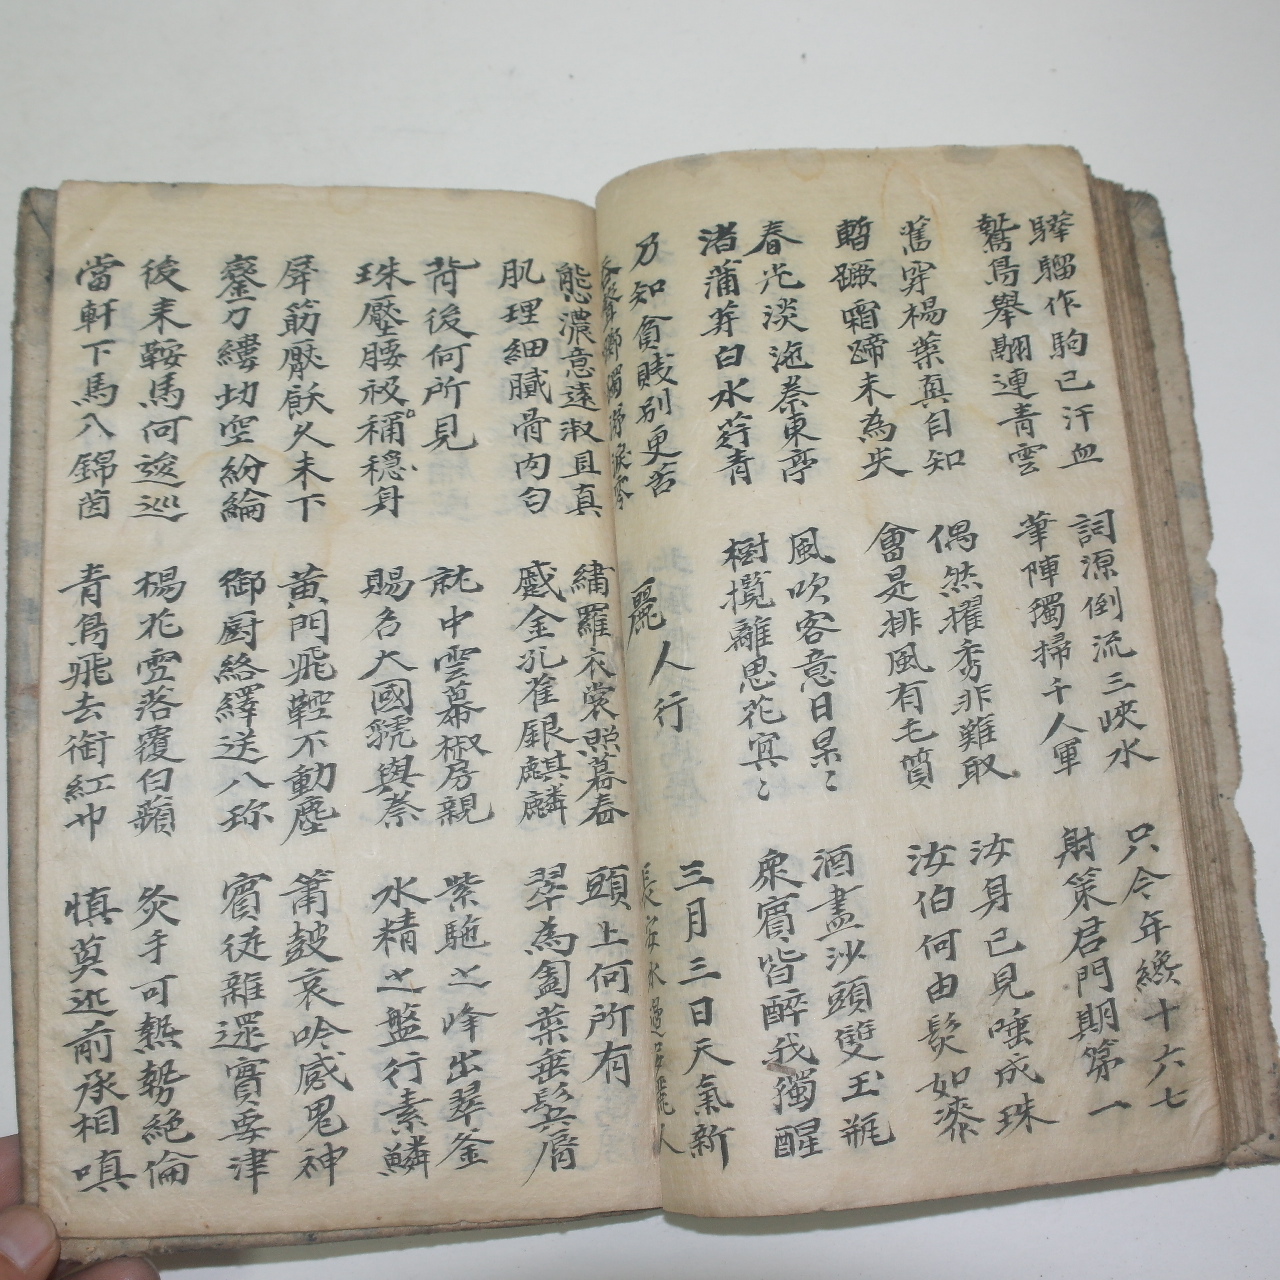 驊騮作駒已汗血
鷙鳥舉翮連青雲
詞源倒流三峽水
筆陣獨掃千人軍
只今年纔十六七
射策君門期第一
舊穿楊葉真自知
暫蹶霜蹄未為失
偶然擢秀非難取
會是排風有毛質
汝身已見唾成珠
汝伯何由髮如漆
春光淡沲秦東亭
渚蒲芽白水荇青
風吹客意日杲〻
樹攪離思花冥〻
酒盡沙頭雙玉瓶
衆賓皆醉我獨醒
乃知貧賤別更苦
吞聲躑躅涕淚零
麗人行
三月三日天氣新
長安水邊多麗人
態濃意遠淑且真
肌理細膩骨肉匀
繡羅衣裳照暮春
蹙金孔雀銀麒麟
頭上何所有
翠為匐葉垂鬓唇
背後何所見
珠壓腰衱稱穩身
就中雲幕椒房親
賜名大國虢與秦
紫駞之峰出翠釜
水精之盤行素鱗
犀筯厭飫久未下
鑾刀縷切空紛綸
黃門飛鞚不動塵
御厨絡繹送八珍
簫皷哀吟感鬼神
賓從雜遝實要津
後来鞍馬何逡巡
當軒下馬入錦茵
楊花雪落覆白蘋
青鳥飛去銜紅巾
炙手可熱勢絕倫
慎莫近前承相嗔